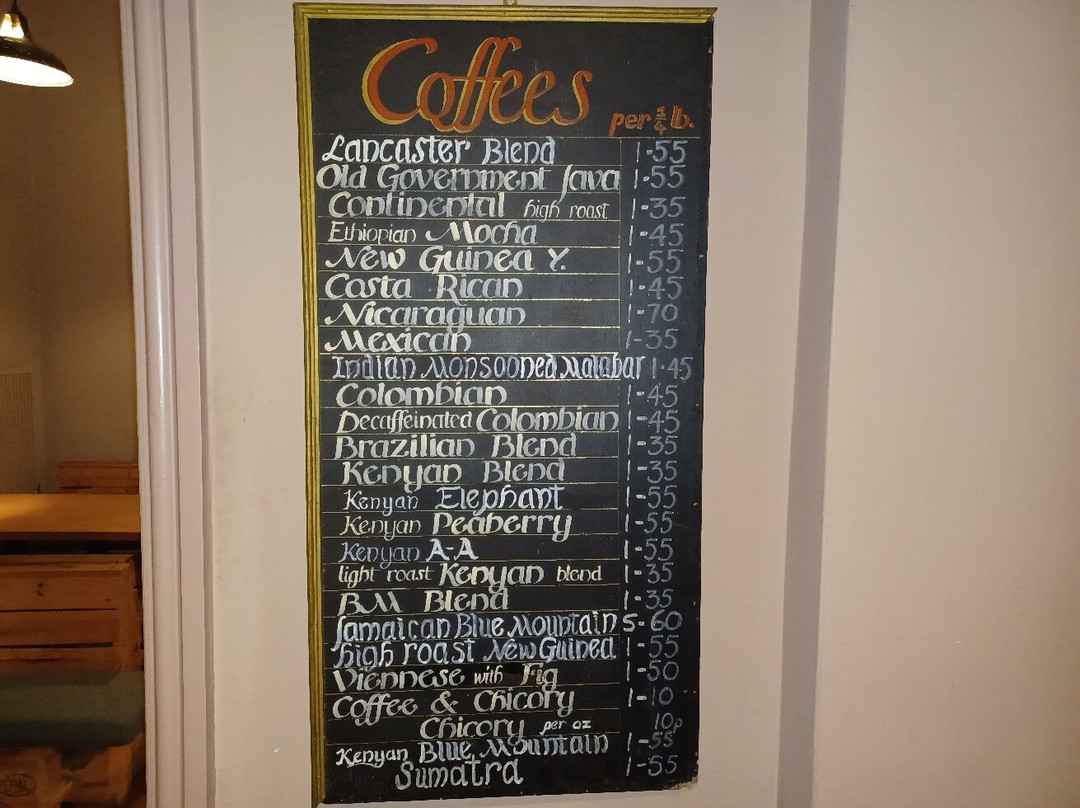 Coffees per 1/4 lb.
Lancaster Blend 1-55
Old Government Java 1-55
Continental high roast 1-35
Ethiopian Mocha 1-45
New Guinea Y. 1-55
Costa Rican 1-45
Nicaraguan 1-70
Mexican 1-35
Indian Monsooned Malabar 1-45
Colombian 1-45
Decaffeinated Colombian 1-45
Brazilian Blend 1-35
Kenyan Blend 1-35
Kenyan Elephant 1-55
Kenyan Peaberry 1-55
Kenyan A-A 1-55
light roast Kenyan blend 1-35
BM Blend 1-35
Jamaican Blue Mountain 5-60
high roast New Guinea 1-55
Viennese with Fig 1-50
Coffee & Chicory 1-10
Chicory per oz 10p
Kenyan Blue Mountain 1-55
Sumatra 1-55